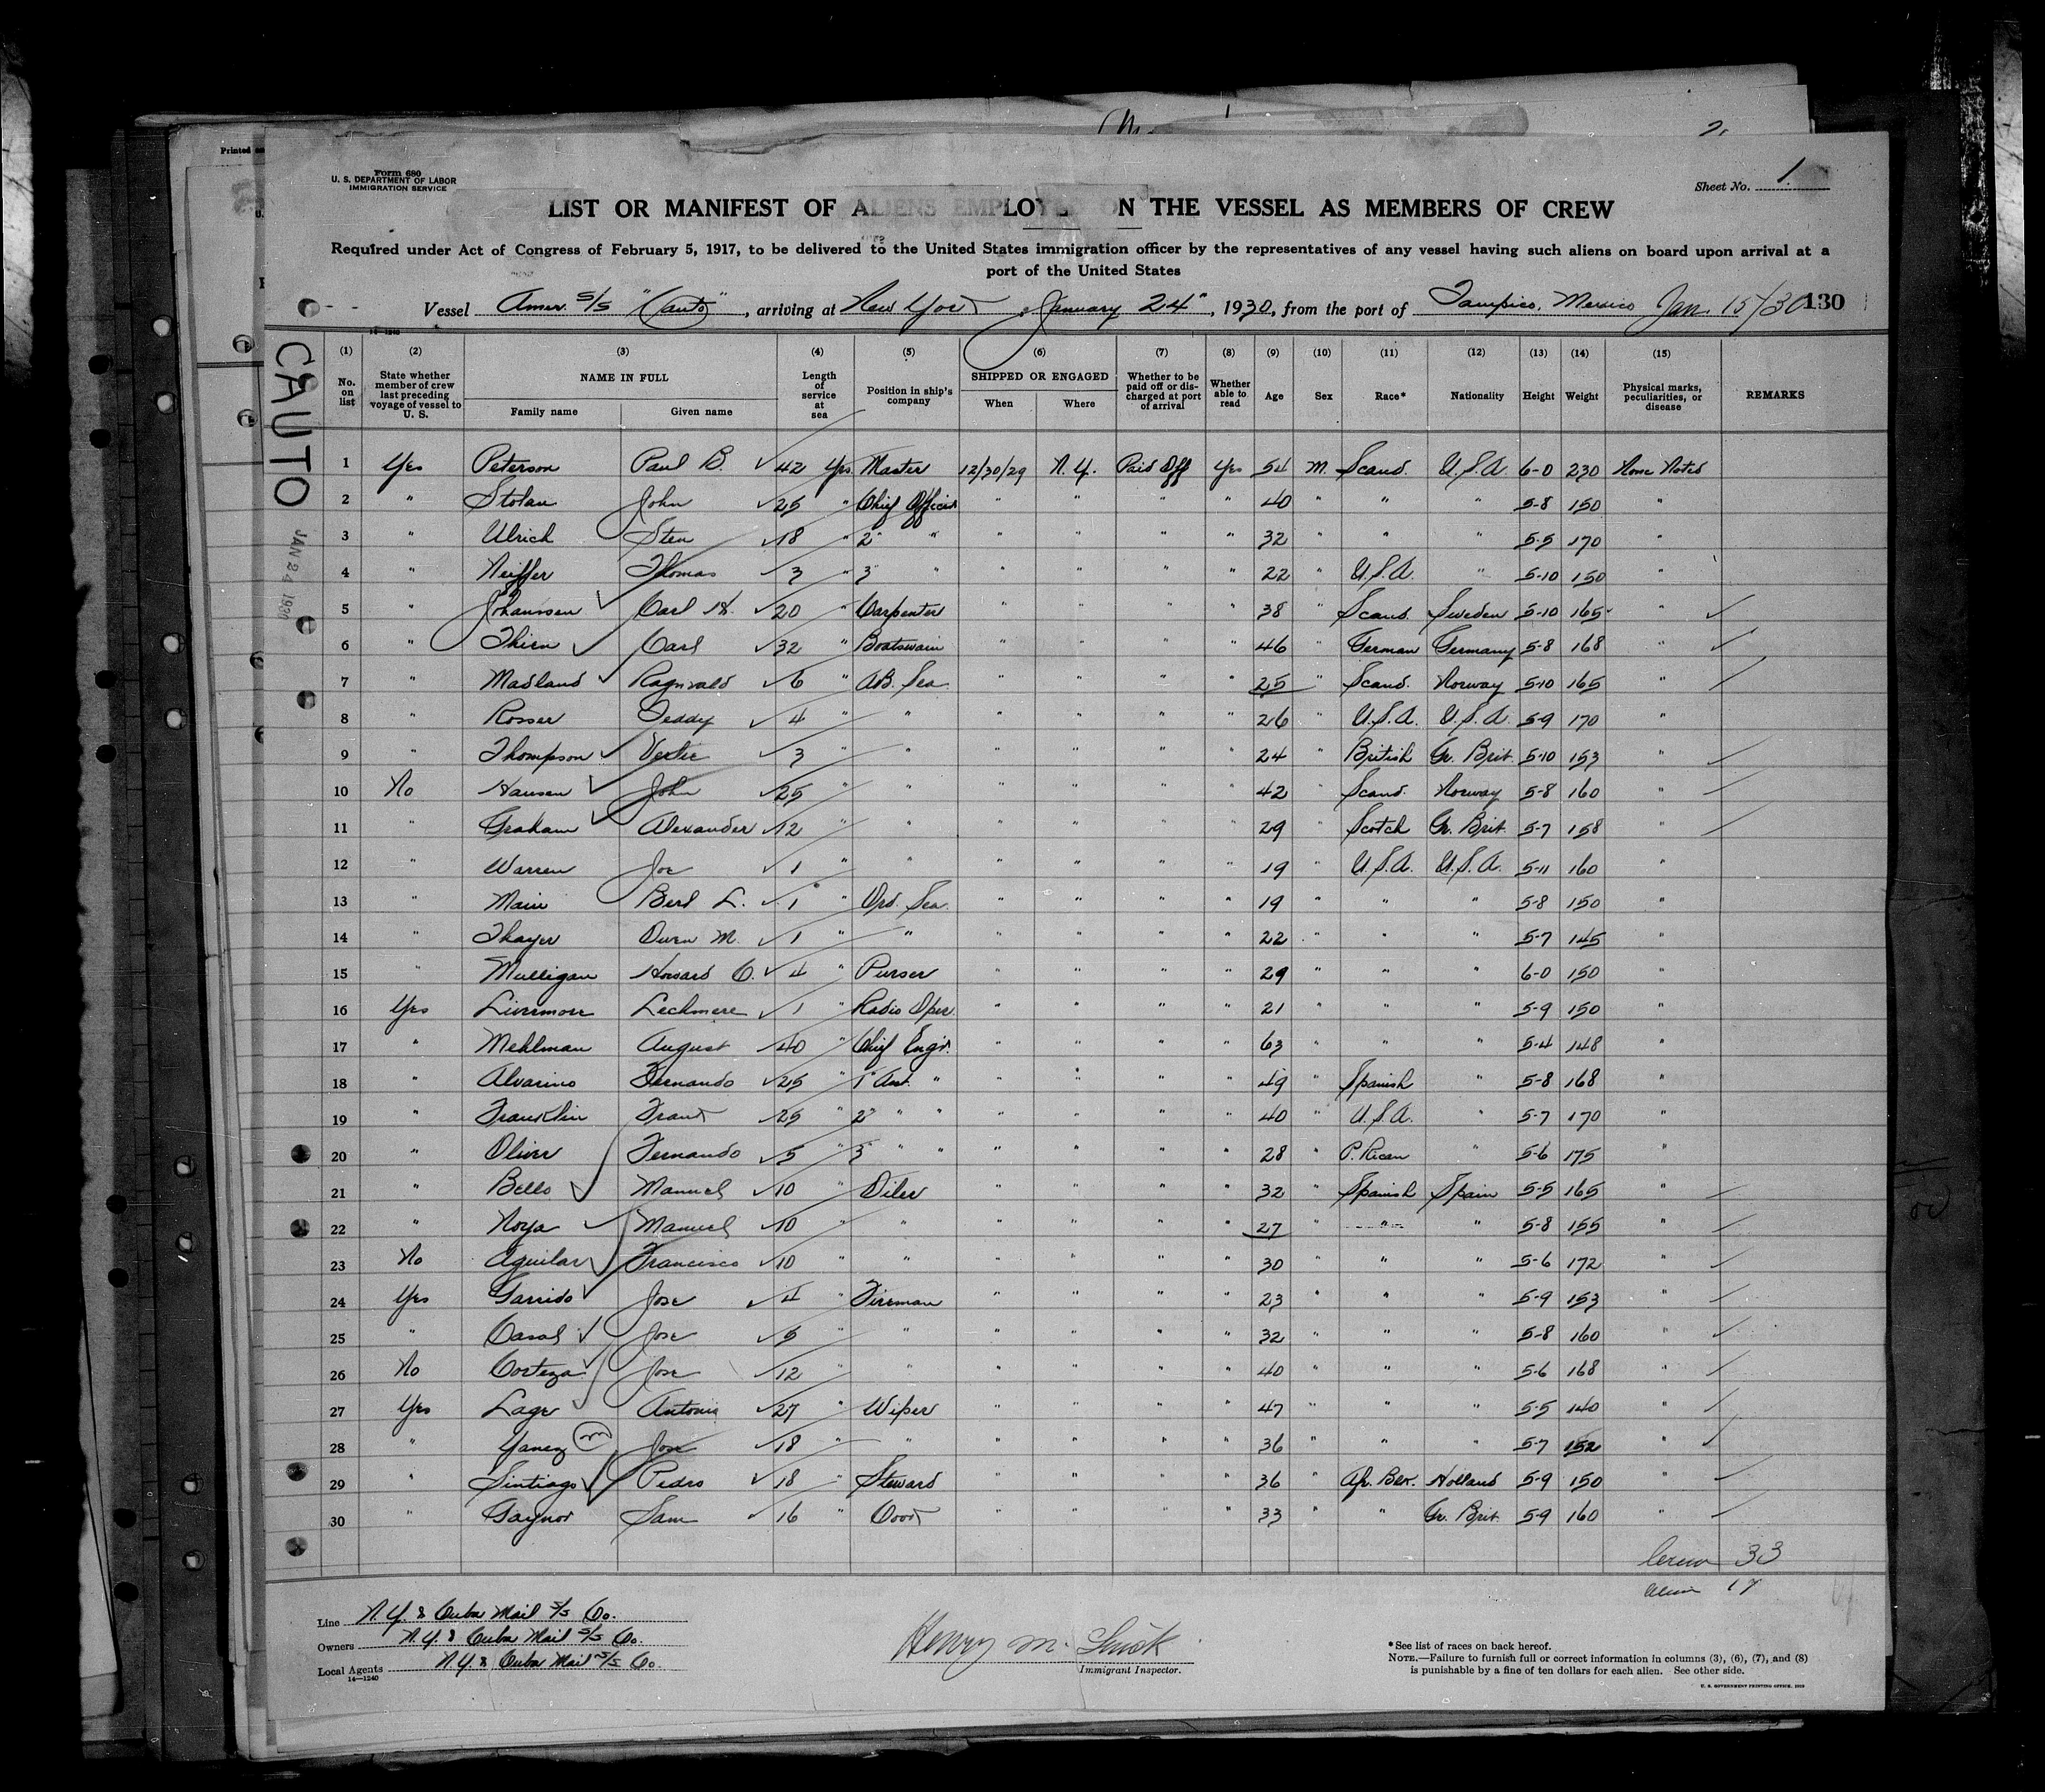 Printed
Form 680
U. S. DEPARTMENT OF LABOR
IMMIGRATION SERVICE
Sheet No. 1.
LIST OR MANIFEST OF ALIENS EMPLOYED ON THE VESSEL AS MEMBERS OF CREW
Required under Act of Congress of February 5, 1917, to be delivered to the United States immigration officer by the representatives of any vessel having such aliens on board upon arrival at a
port of the United States
Vessel Amer. S/S "Cauto", arriving at New York, January 24", 1930, from the port of Tampico, Mexico Jan. 15/30 130
CAUTO
JAN 24 1930
(1) (2) (3) (4) (5) (6) (7) (8) (9) (10) (11) (12) (13) (14) (15)
No. on list | State whether member of crew last preceding voyage of vessel to U. S. | NAME IN FULL | Family name | Given name | Length of service at sea | Position in ship's company | SHIPPED OR ENGAGED | When | Where | Whether to be paid off or discharged at port of arrival | Whether able to read | Age | Sex | Race* | Nationality | Height | Weight | Physical marks, peculiarities, or disease | REMARKS
1 Yes Peterson Paul B. 42 Yrs. Master 12/30/29 N.Y. Paid Off Yes 54 M. Scand. U.S.A. 6-0 230 None Noted
2 " Stolan John 25 " Chief Officer " " " " 40 " " " 5-8 150 "
3 " Ulrich Sten 18 " 2" " " " " " 32 " " " 5-5 170 "
4 " Neiffer Thomas 3 " 3" " " " " " 22 " U.S.A. " 5-10 150 "
5 " Johannsen Carl H. 20 " Carpenter " " " " 38 " Scand. Sweden 5-10 165 "
6 " Thien Carl 32 " Boatswain " " " " 46 " German Germany 5-8 168 "
7 " Madland Ragnvald 6 " AB. Sea. " " " " 25 " Scand. Norway 5-10 165 "
8 " Rosser Teddy 4 " " " " " " 26 " U.S.A. U.S.A. 5-9 170 "
9 " Thompson Vertie 3 " " " " " " 24 " British Gr. Brit. 5-10 153 "
10 No Hansen John 25 " " " " " " 42 " Scand. Norway 5-8 160 "
11 " Graham Alexander 12 " " " " " " 29 " Scotch Gr. Brit. 5-7 158 "
12 " Warren Joe 1 " " " " " " 19 " U.S.A. U.S.A. 5-11 160 "
13 " Main Berl L. 1 " Ord. Sea. " " " " 19 " " " 5-8 150 "
14 " Thayer Owen M. 1 " " " " " " 22 " " " 5-7 145 "
15 " Mulligan Howard C. 4 " Purser " " " " 29 " " " 6-0 150 "
16 Yes Livermore Lechmere 1 " Radio Oper. " " " " 21 " " " 5-9 150 "
17 " Mehlman August 40 " Chief Engr. " " " " 63 " " " 5-4 148 "
18 " Alvarino Fernando 25 " 1" Asst. " " " " " 49 " Spanish " 5-8 168 "
19 " Franklin Frank 25 " 2" " " " " " " 40 " U.S.A. " 5-7 170 "
20 " Oliver Fernando 5 " 3" " " " " " " 28 " P. Rican " 5-6 175 "
21 " Bello Manuel 10 " Oiler " " " " 32 " Spanish Spain 5-5 165 "
22 " Noya Manuel 10 " " " " " " 27 " " " 5-8 155 "
23 No Aguilar Francisco 10 " " " " " " 30 " " " 5-6 172 "
24 Yes Garrido Jose 4 " Fireman " " " " 23 " " " 5-9 153 "
25 " Casal Jose 5 " " " " " " 32 " " " 5-8 160 "
26 No Corteza Jose 12 " " " " " " 40 " " " 5-6 168 "
27 Yes Lage Antonio 27 " Wiper " " " " 47 " " " 5-5 140 "
28 " Yanez m Jose 18 " " " " " " 36 " " " 5-7 152 "
29 " Sintiago Pedro 18 " Steward " " " " 36 " Afr. Blk. Holland 5-9 150 "
30 " Gaynor Sam 16 " Cook " " " " 33 " " Gr. Brit. 5-9 160 "
Crew 33
Alien 17
Line N.Y. & Cuba Mail S/S Co.
Owners N.Y. & Cuba Mail S/S Co.
Local Agents N.Y. & Cuba Mail S/S Co.
14—1240
Henry M.
Immigrant Inspector.
*See list of races on back hereof.
NOTE.—Failure to furnish full or correct information in columns (3), (6), (7), and (8)
is punishable by a fine of ten dollars for each alien. See other side.
U. S. GOVERNMENT PRINTING OFFICE